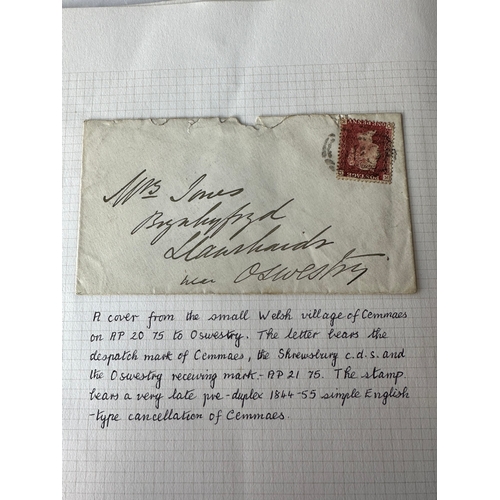 POSTAGE
Mrs Jones
Brynhyfryd
near Oswestry
A cover from the small Welsh village of Cemmaes
on AP 20 75 to Oswestry. The letter bears the
despatch mark of Cemmaes, the Shrewsbury c.d.s. and
the Oswestry receiving mark - AP 21 75. The stamp
bears a very late pre-duplex 1844-55 simple English
-type cancellation of Cemmaes.